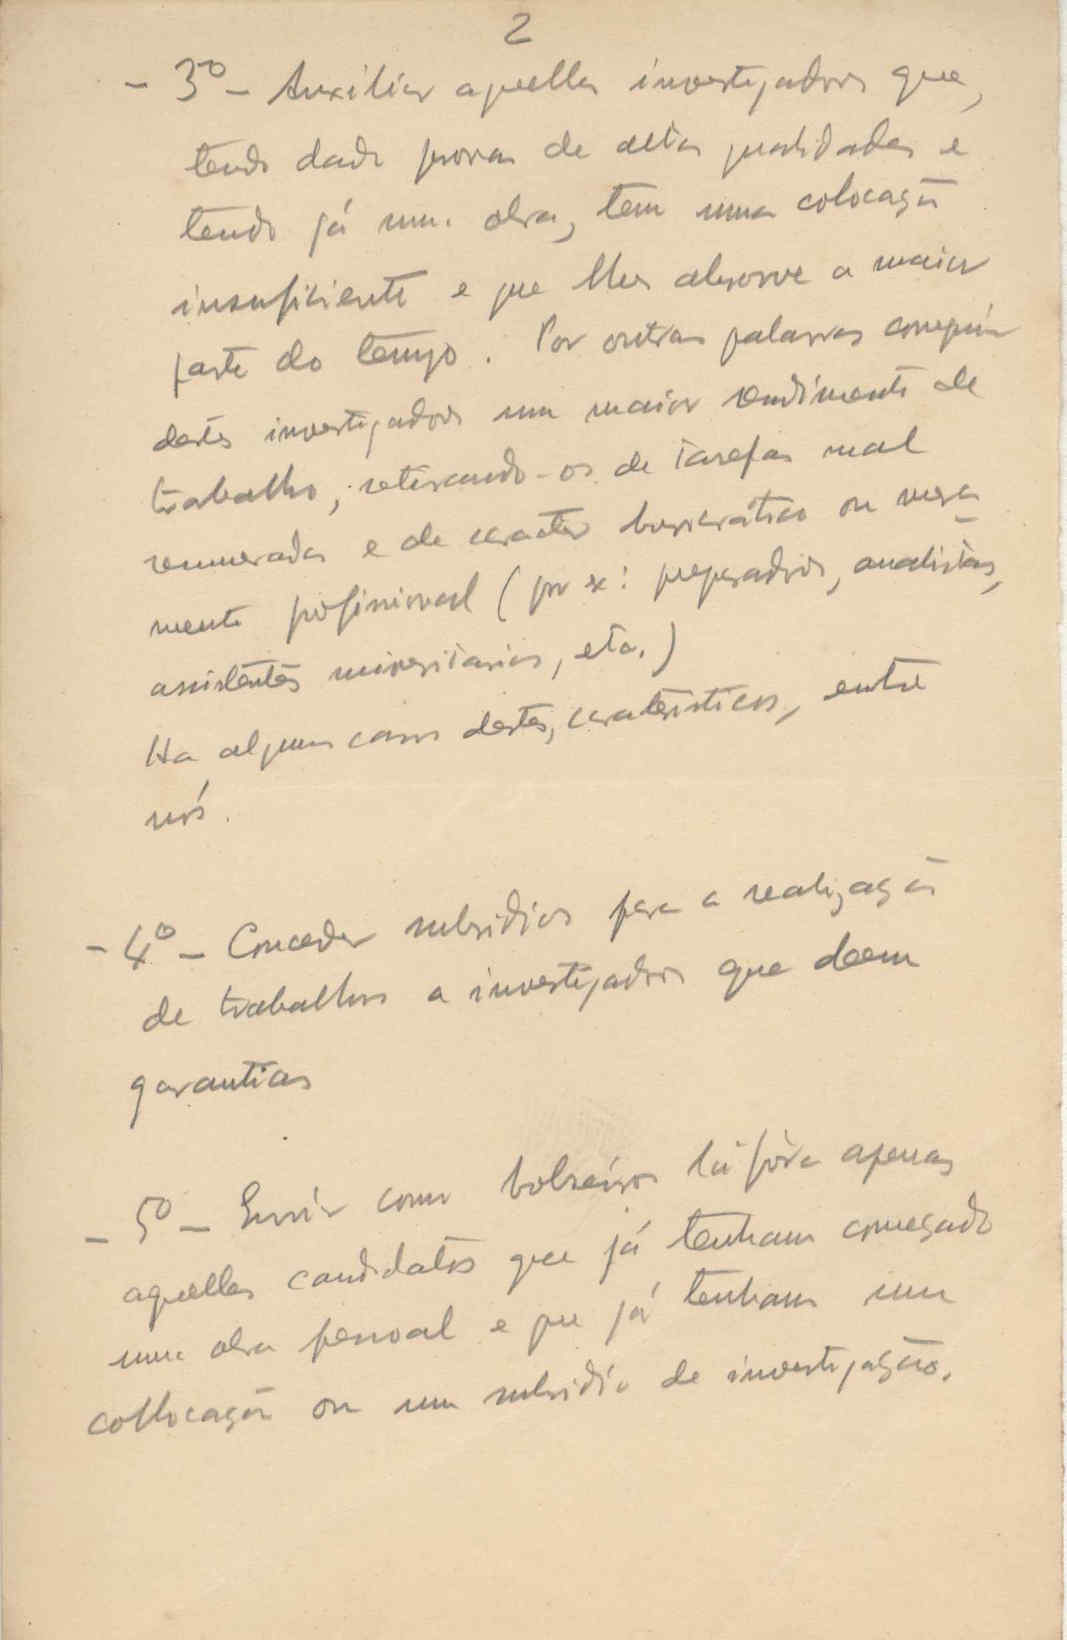 2
- 3º - Auxiliar aquelles investigadores que,
tendo dado provas de altas qualidades e
tendo já uma obra, tem uma colocação
insuficiente e que lhes absorve a maior
parte do tempo. Por outras palavras conseguir
destes investigadores um maior rendimento de
trabalho, retirando-os de tarefas mal
remuneradas e de caracter burocrático ou mera-
mente profissional (por ex: preparadores, analistas,
assistentes universitarios, etc.)
Ha alguns casos destes, caraterísticos, entre
nós.
- 4º - Conceder subsidios para a realização
de trabalhos a investigadores que deem
garantias
- 5º - Enviar como bolseiros lá fóra apenas
aquelles candidatos que já tenham começado
uma obra pessoal e que já tenham uma
collocação ou um subsidio de investigação.